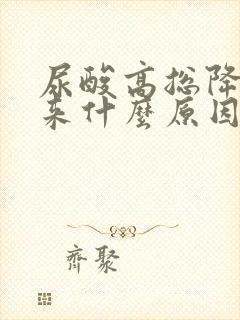 尿酸高总降
来什麼原因
齊聚